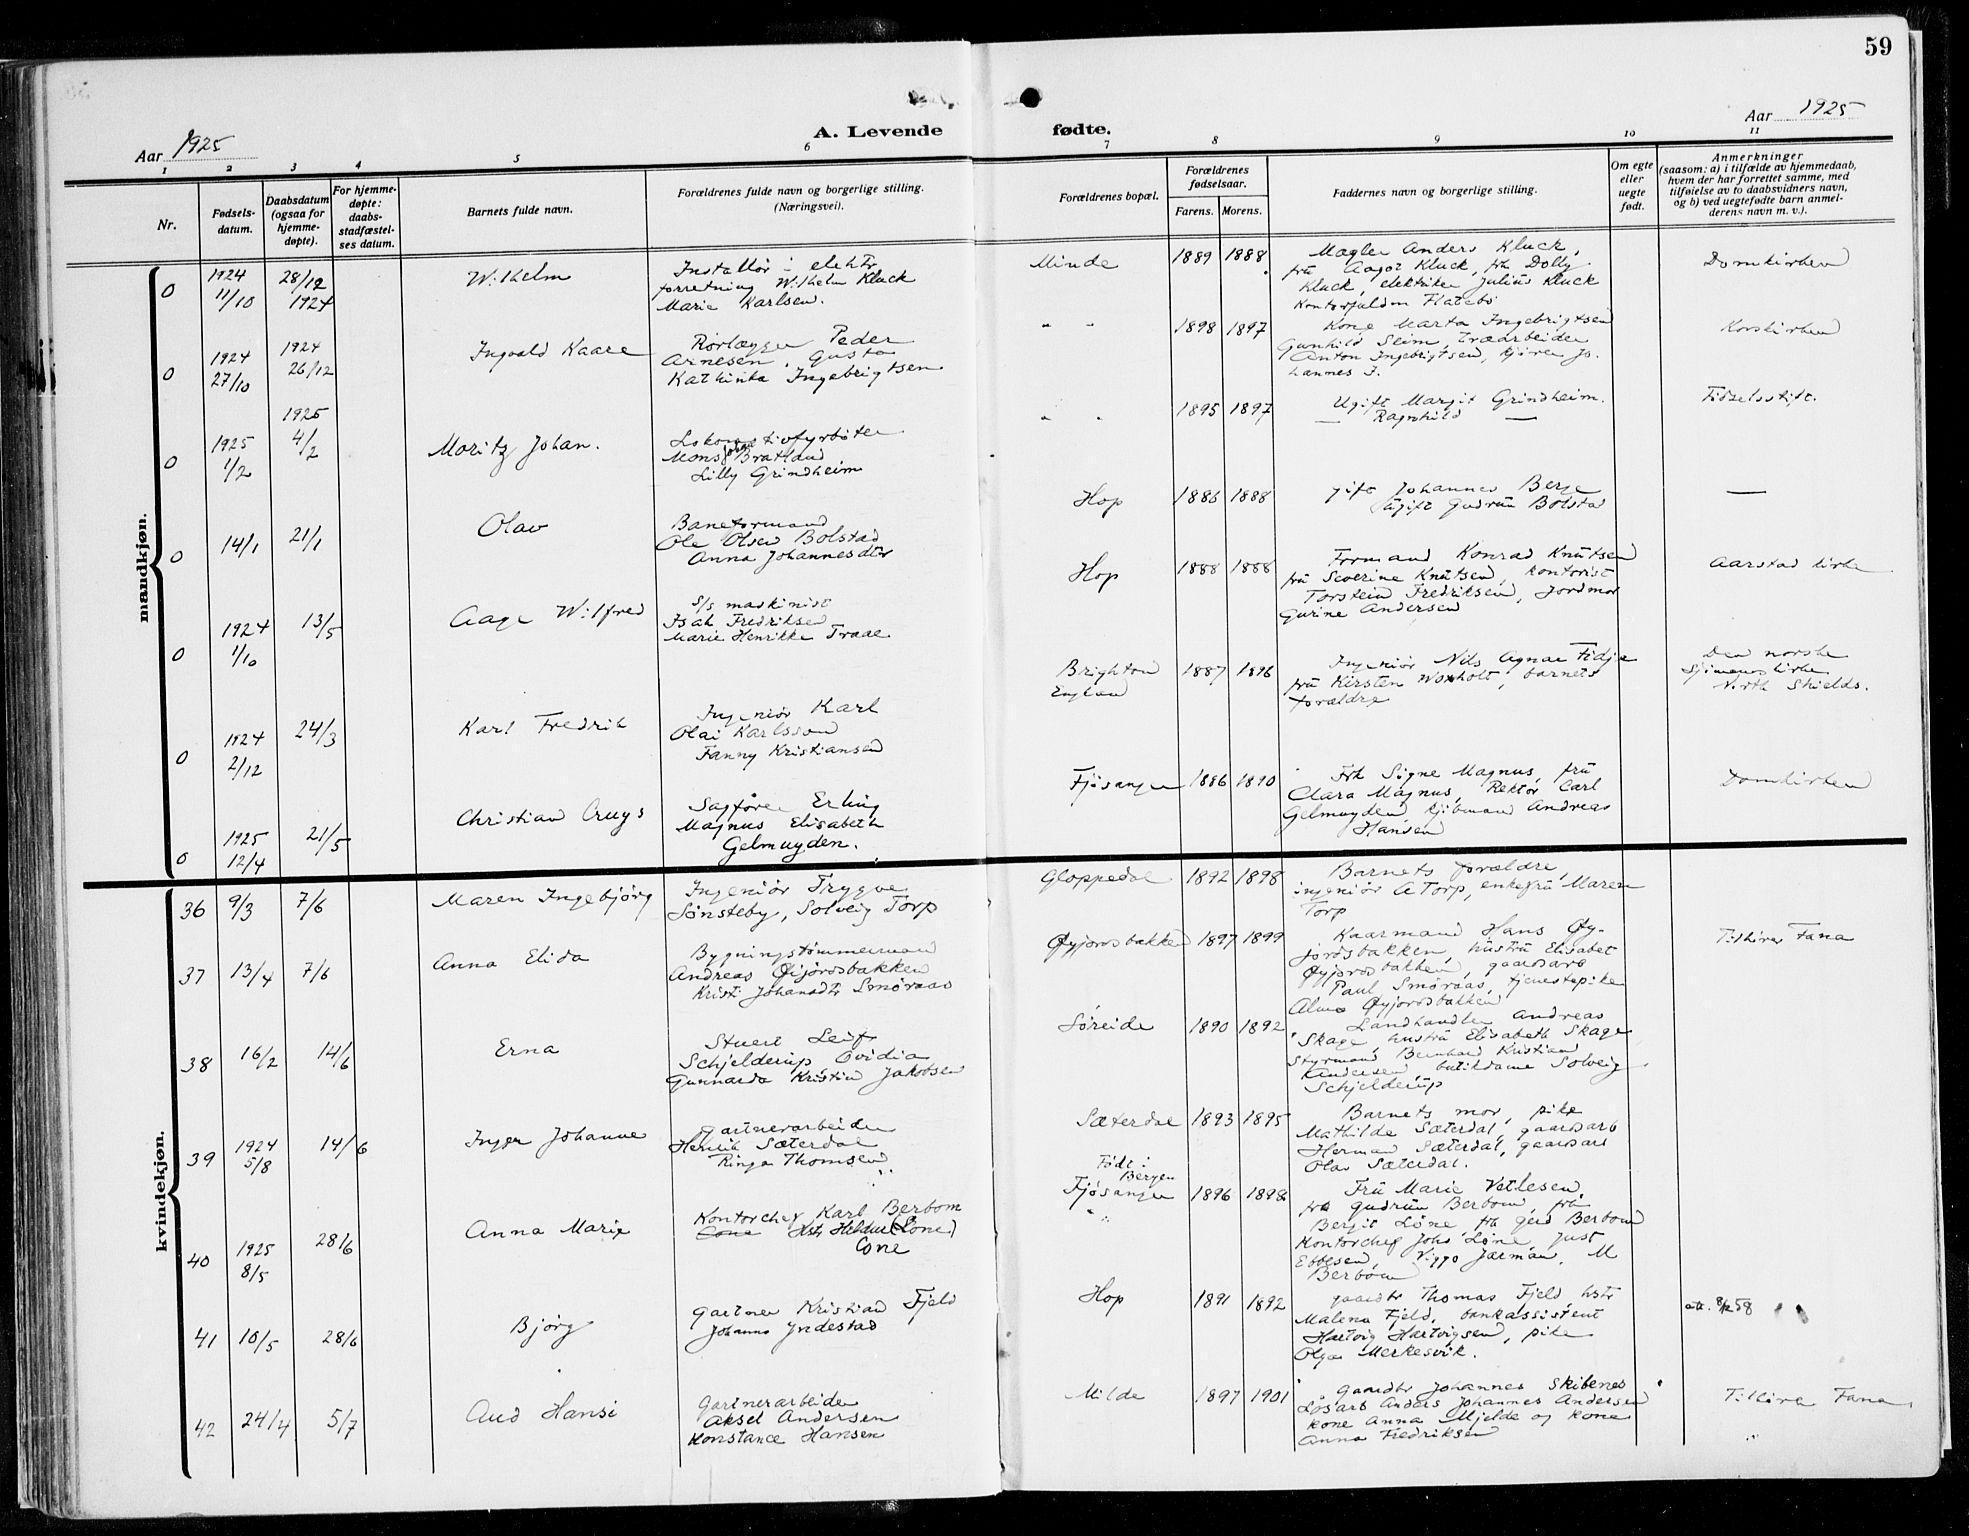 59
Aar 1925
A. Levende fødte.
Aar 1925
1 2 3 4 5 6 7 8 9 10 11
Nr.
Fødsels-
datum.
Daabsdatum
(ogsaa for
hjemme-
døpte).
For hjemme-
døpte:
daabs-
stadfæstel-
ses datum.
Barnets fulde navn.
Forældrenes fulde navn og borgerlige stilling.
(Næringsvei).
Forældrenes bopæl.
Forældrenes
fødselsaar.
Farens. Morens.
Faddernes navn og borgerlige stilling.
Om egte
eller
uegte
født.
Anmerkninger
(saasom: a) i tilfælde av hjemmedaab,
hvem der har forrettet samme, med
tilføielse av to daabsvidners navn,
og b) ved uegtefødte barn anmel-
derens navn m. v.).
mandkjøn.
0
1924
11/10
28/12
1924
Wilhelm
Installør i elektr
forretning Wilhelm Kluck
Marie Karlsen.
Minde
1889 1888
Magler Anders Kluck,
fru Aagot Kluck, frk Dolly
Kluck, elektriker Julius Kluck
Flatebø
Domkirken
0
1924
27/10
1924
26/12
Ingvald Kaare
Rørlægger Peder
Arnesen, Gusta
Kathinka Ingebrigtsen
" "
1898 1897
Kone Marta Ingebrigtsen
Gunhild Seim, træarbeider
Anton Ingebrigtsen, kjører Jo-
hannes I.
Korskirken
0
1925
1/2
1925
4/2
Moritz Johan.
Lokomotivfyrbøter
Mons Johan Bratland
Lilly Grindheim
" "
1895 1897
Ugift Margit Grindheim.
— Ragnhild —
Fødselsstift.
0
14/1
21/1
Olav
Baneformand
Ole Olsen Bolstad
Anna Johannesdtr
Hop
1886 1888
gift Johannes Berge
Ugift Gudrun Bolstad
—
0
1924
1/10
13/5
Aage Wilfred
S/s maskinist
Isak Fredriksen
Marie Henrikke Traae
Hop
1888 1888
Formand Konrad Knutsen
fru Severine Knutsen, kontorist
Torstein Fredriksen, Jordmor
Gurine Andersen
Aarstad kirke
0
1924
2/12
24/3
Karl Fredrik
Ingeniør Karl
Olai Karlsson
Fanny Kristiansen
Brighton
England
1887 1896
Ingeniør Nils Agnar Fidje
fru Kirsten Woxholt, barnets
forældre
Den norske
Sjømanskirke
North Shields.
0
1925
12/4
21/5
Christian Cruys
Sagfører Erling
Magnus Elisabeth
Gelmuyden.
Fjøsanger
1886 1890
Frk Signe Magnus, fru
Clara Magnus, Rektor Carl
Gelmuyden, kjøbmand Andreas
Hansen
Domkirken
kvindekjøn.
36
9/3
7/6
Maren Ingebjørg
Ingeniør Trygve
Sønsteby, Solveig Torp
Gloppedal
1892 1898
Barnets forældre,
ingeniør A Torp, enkefru Maren
Torp
37
13/4
7/6
Anna Elida
Bygningstømmermand
Andreas Øijordsbakken
Kristi Johansdtr Smøraas
Øyjordsbakken
1897 1899
Kaarmand Hans Øy-
jordsbakken, hustru Elisabet
Øyjordsbakken, gaardsarb
Paul Smøraas, tjenestepike
Alma Øyjordsbakken
Tilhører Fana
38
16/2
14/6
Erna
Stuert Leif
Schjelderup, Ovidia
Gunnarda Kristin Jakobsen
Søreide
1890 1892
Landhandler Andreas
Skage, hustru Elisabeth Skage
Styrmand Bernhard Kristian
Andersen, butikdame Solveig
Schjelderup
39
1924
5/8
14/6
Inger Johanne
Gartnerarbeider
Henrik Sæterdal
Ringa Thomsen
Sæterdal
1893 1895
Barnets mor, pike
Mathilde Sæterdal, gaardsarb
Herman Sæterdal, gaardsarb
Olav Sæterdal.
40
1925
8/5
28/6
Anna Marie
Kontorchef Karl Berbom
(Lone)
Født i
Bergen
Fjøsanger
1896 1898
Fru Marie Vetlesen,
Gudrun Berbom, fru
Bergit Lone frk Gerd Berbom
Kontorchef Johs Lone Just
Ebbesen, Viggo Jarman, M
Berbom
41
10/5
28/6
Bjørg
Gartner Kristian Fjeld
Johanna Yndestad
Hop
1891 1892
gaardbr Thomas Fjeld hstr
Malena Fjeld, bankassistent
Hartvig Hartvigsen, pike
Olga Merkesvik.
42
24/4
5/7
Aud Hansi
Gartnerarbeider
Aksel Andersen
Konstance Hansen
Milde
1897 1901
gaardbr Johannes Skibenes
Løsarb Anders Johannes Andersen
kone Anna Mjelde og kone
Anna Fredriksen
Tilhører Fana